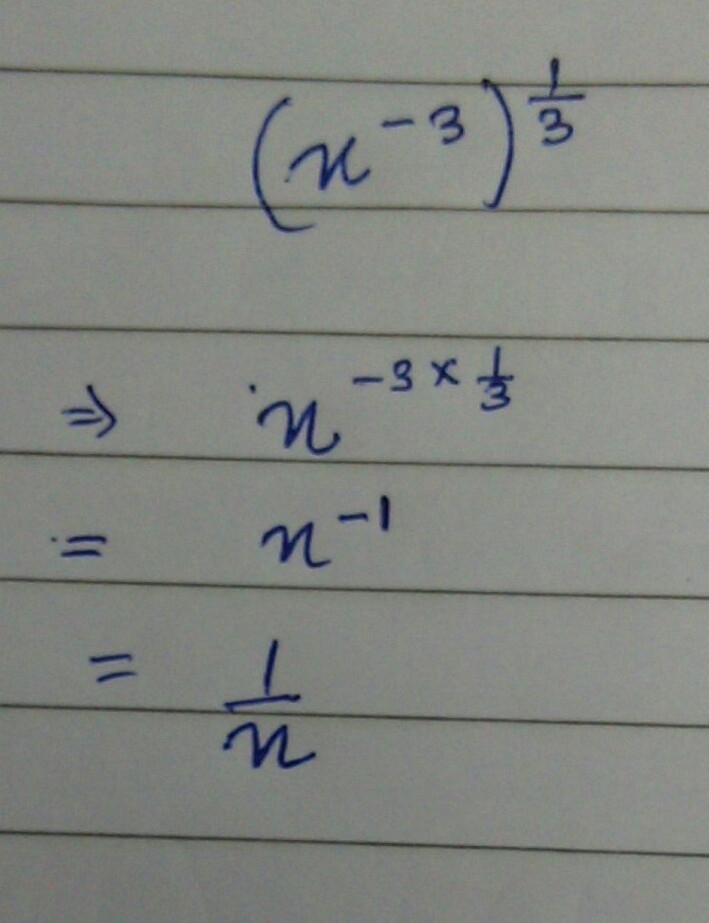 (x^{-3})^{\frac{1}{3}}
⇒ x^{-3 × \frac{1}{3}}
= x^{-1}
= \frac{1}{x}